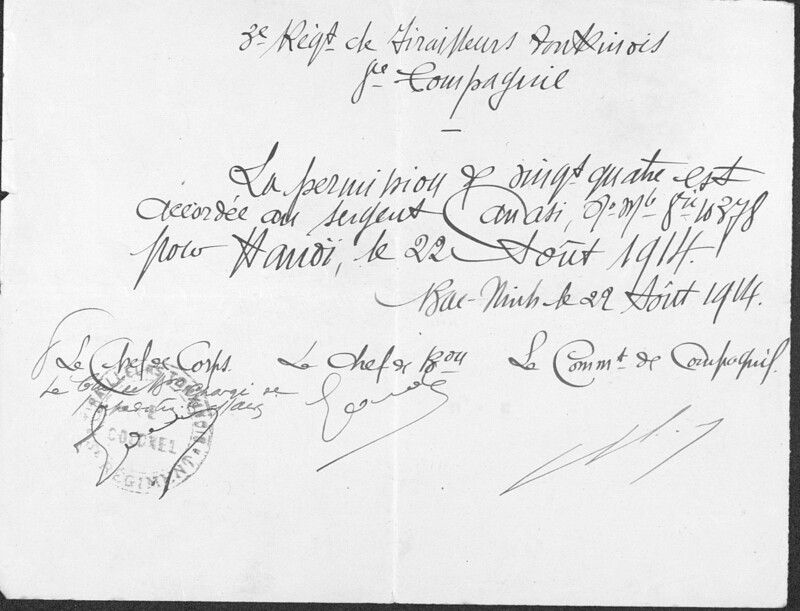 3e Régt de Tirailleurs Tonkinois
9e Compagnie
La permission de vingt quatre est
accordée au sergent Canasi, No Mle 10378
pour Hanoï, le 22 Août 1914.
Bac-Ninh le 22 Août 1914.
Le Chef de Corps. Le Chef de Bon Le Commt de Compagnie.
Le Chef de Bon chargé
COLONEL
REGIMENT